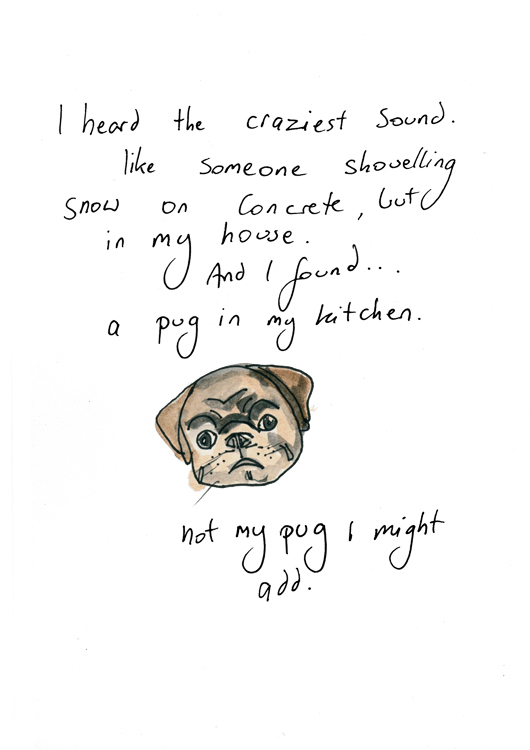 I heard the craziest sound.
like someone shovelling
snow on concrete, but
in my house.
And I found...
a pug in my kitchen.
not my pug I might
add.